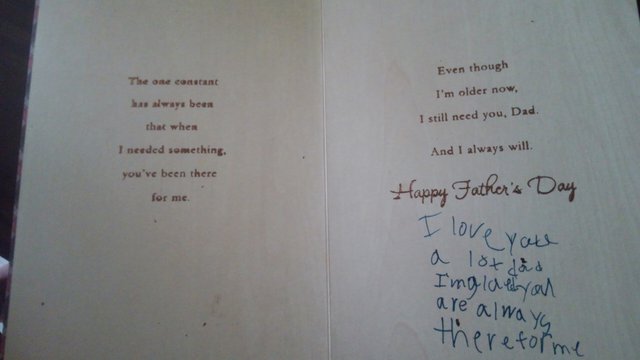 The one constant
has always been
that when
I needed something,
you've been there
for me.
Even though
I'm older now,
I still need you, Dad.
And I always will.
Happy Father's Day
I love you
a lot dad
I'm glad you
are always
there for me